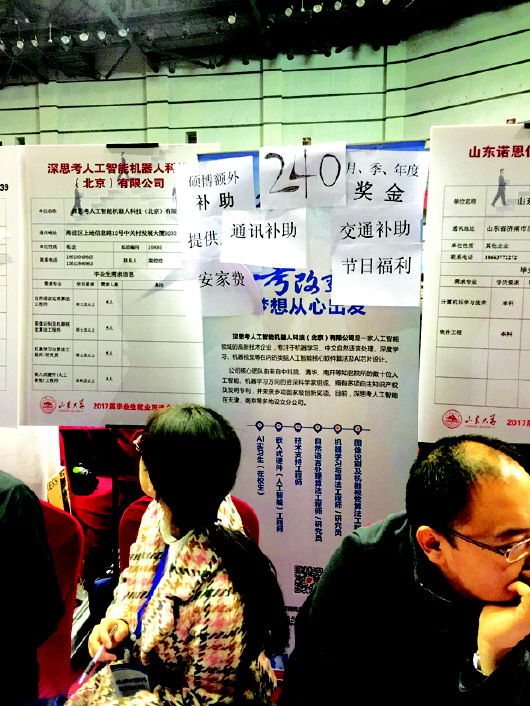 深思考人工智能机器人科技
（北京）有限公司
单位名称
深思考人工智能机器人科技（北京）有限
通讯地址
单位性质
私企
联系电话
毕业生需求信息
需求专业
学历要求
需求人数
2017届毕业生就业
硕博额外
补助
240
月、季、年度
奖金
提供
通讯补助
交通补助
安家费
节日福利
梦想从心出发
深思考人工智能机器人科技（北京）有限公司是一家人工智能
领域的高新技术企业，专注于机器学习、中文自然语言处理、深度学
习、机器视觉等在内的类脑人工智能核心软件算法及AI芯片设计。
公司核心团队由来自中科院、清华、南开等知名院所的数十位人
工智能、机器学习方向的资深科学家组成，拥有多项自主知识产权
及发明专利，并荣获多项国家级创新奖项。目前，深思考人工智能
在天津、南京等多地设立分公司。
图像识别及机器视觉算法工程
机器学习与算法工程师/研究员
自然语言处理算法工程师/研究员
技术支持工程师
嵌入式硬件（人工智能）工程师
AI实习生（在校生）
山东诺恩
单位名称
通讯地址
山东省济南市
单位性质
其他企业
联系电话
18663771272
需求专业
学历要求
计算机科学与技术
本科
软件工程
本科
山东大学
2017届